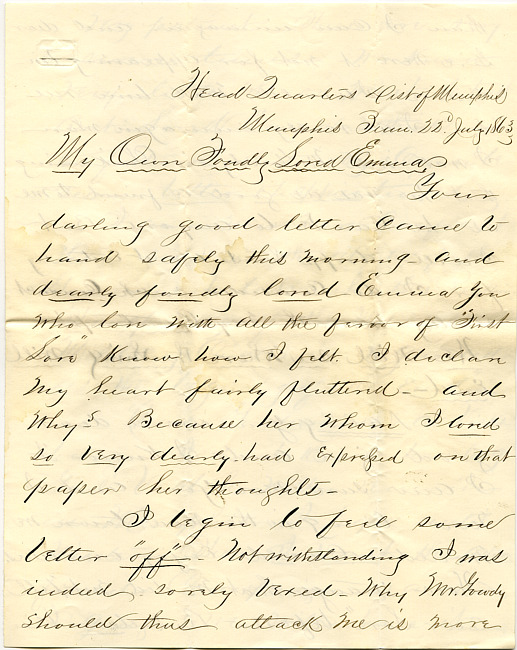 Head Quarters Dist of Memphis
Memphis Tenn. 22d July 1863
My Own Fondly Loved Emma
Your
darling good letter came to
hand safely this morning - and
dearly fondly loved Emma you
who can with all the fervor of "First
Love" Know how I felt. I declare
My heart fairly fluttered - and
Why? Because her whom I loved
so very dearly - had Expressed on that
paper her thoughts -
I begin to feel some
better "off" - Notwithstanding I was
indeed sorely Vexed - Why Mr. Gowdy
should thus attack me is more